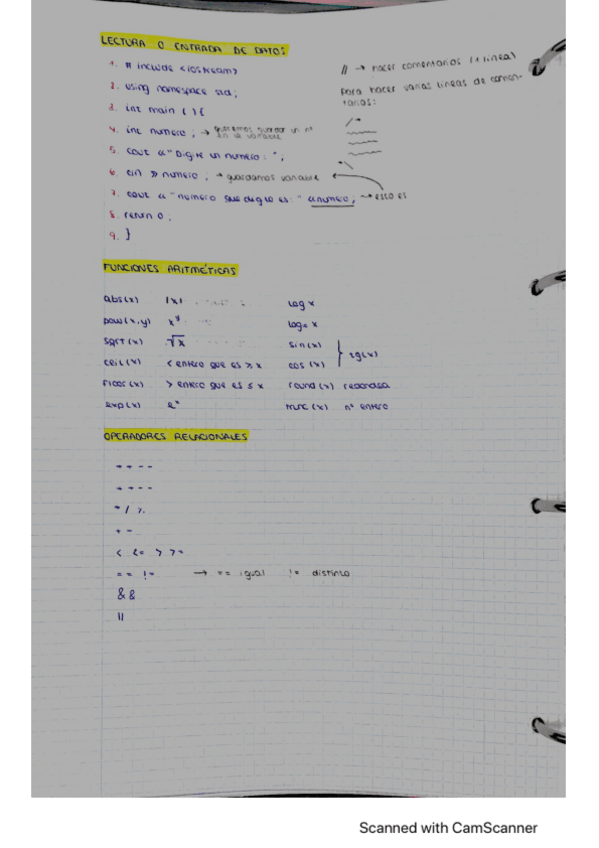 LECTURA O ENTRADA DE DATOS
1. # include <iostream>
2. using namespace std;
3. int main ( ) {
4. int numero ; → queremos guardar un nº
en la variable
5. cout << "Digite un numero : " ;
6. cin >> numero ; → guardamos variable
7. cout << "numero que digito es : " << numero ; → esto es
8. return 0 ;
9. }
// → hacer comentarios (1 linea)
Para hacer varias lineas de comen-
tarios:
/*
*/
FUNCIONES ARITMÉTICAS
abs(x) |x| log x
pow(x,y) x^y x
sqrt(x) √x sin(x)
ceil(x) < entero que es ≥ x cos(x) } tg(x)
floor(x) > entero que es ≤ x round(x) redondea
exp(x) e^x trunc(x) nº entero
OPERADORES RELACIONALES
++ --
++ --
* / %
+ -
< <= > >=
== != → == igual != distinto
&&
||
Scanned with CamScanner